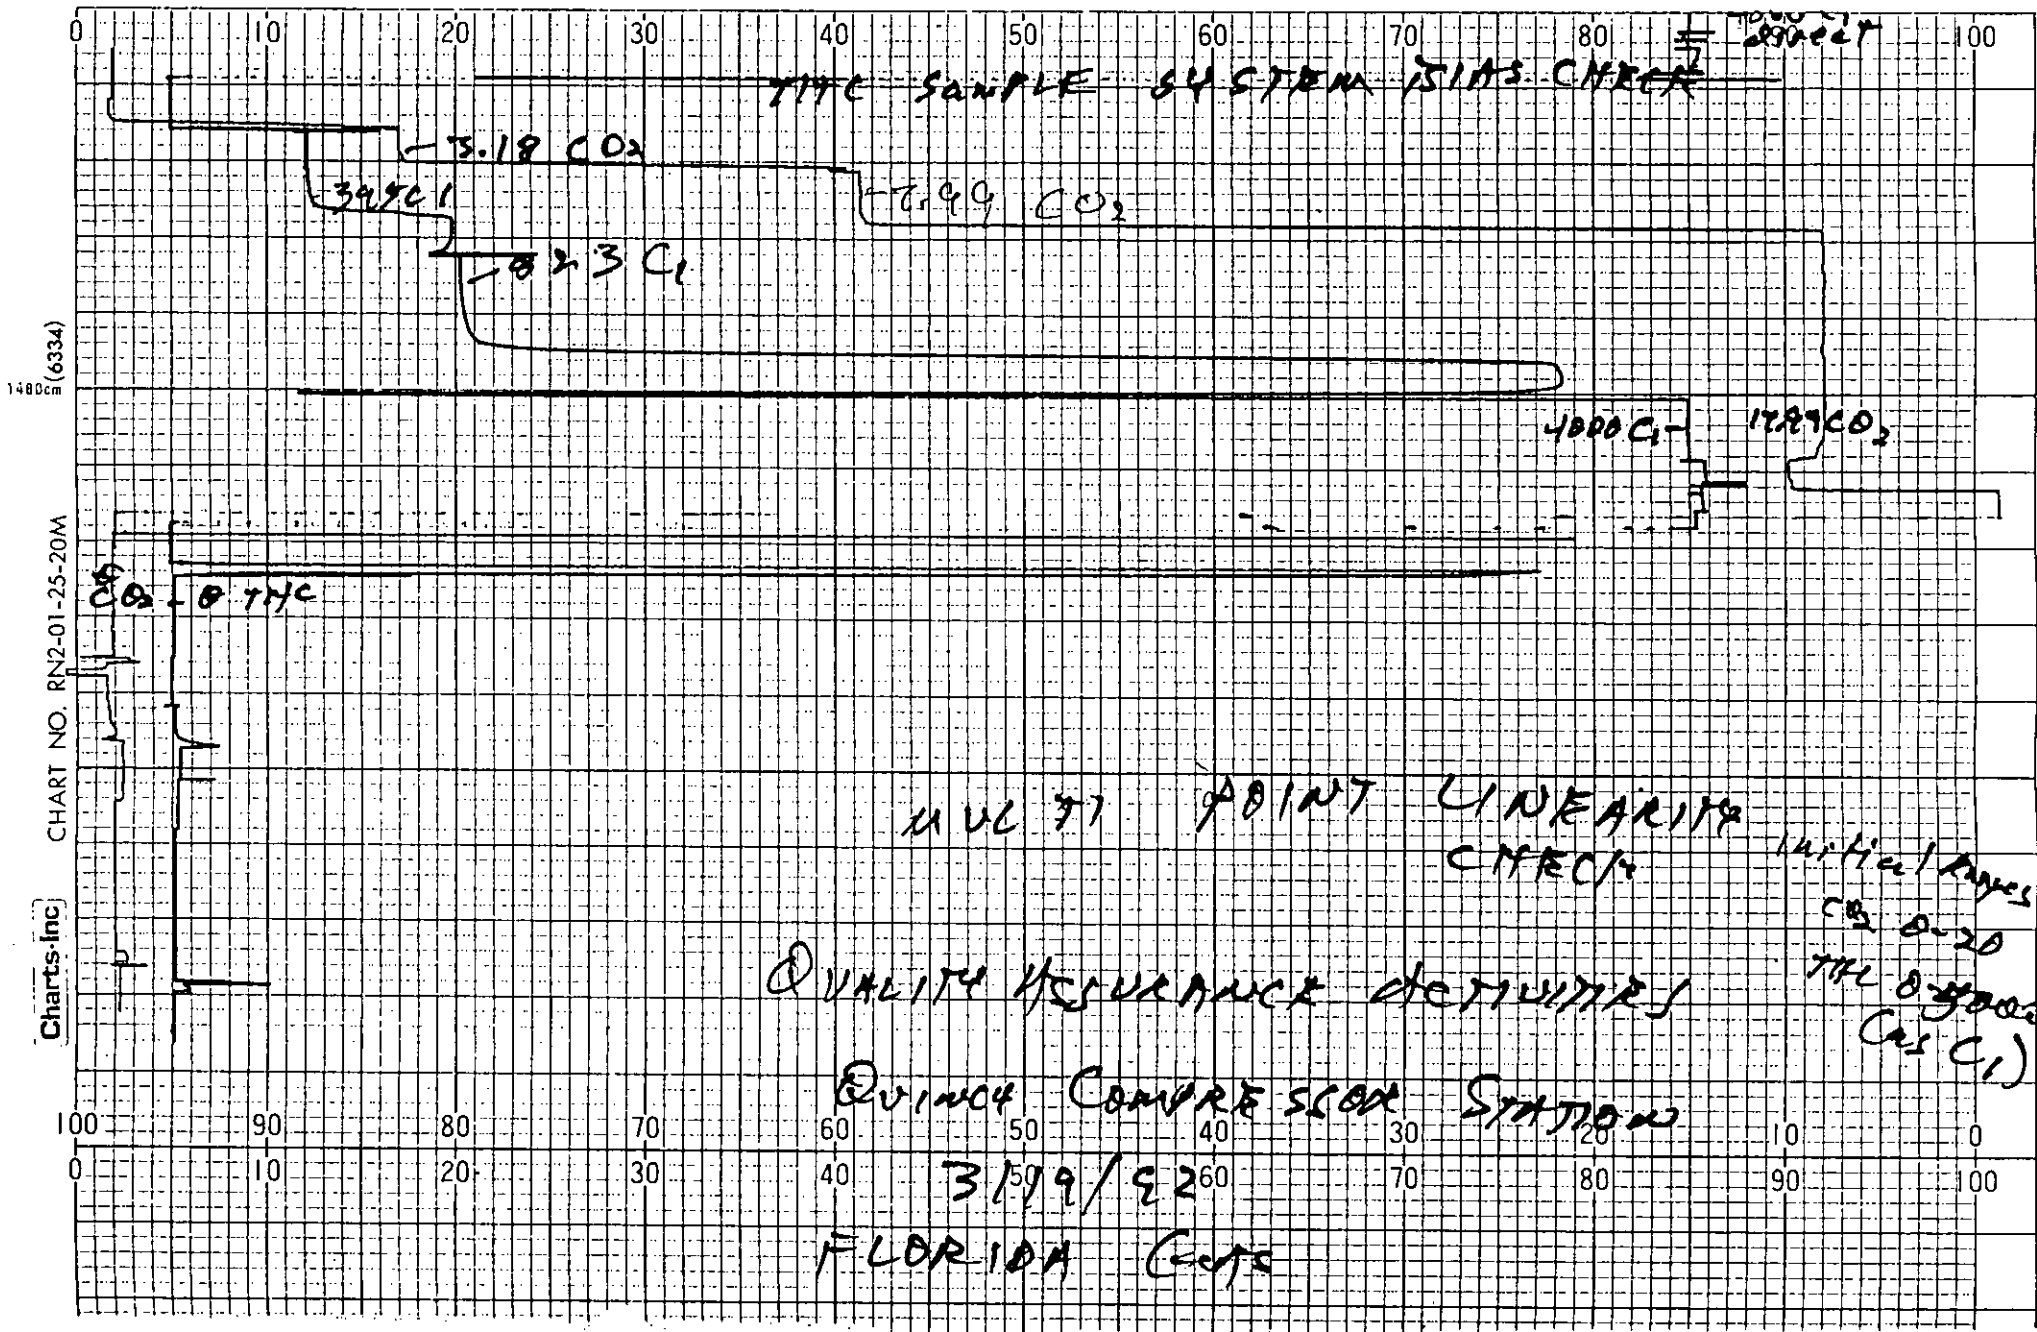 0 10 20 30 40 50 60 70 80 100
THC SAMPLE SYSTEM BIAS CHECK
3.18 CO2
394 C1
7.99 CO2
823 C1
(6334)
1480cm
4000 C1
17.99 CO2
CHART NO. RN2-01-25-20M
CO2 - 0 THC
MULTI POINT LINEARITY
CHECK
Initial Ranges
CO2 0-20
THC
(as C1)
Charts-Inc
QUALITY ASSURANCE ACTIVITIES
QUINCY COMPRESSOR STATION
100 90 80 70 60 50 40 30 20 10 0
0 10 20 30 40 50 60 70 80 90 100
3/19/92
FLORIDA GAS